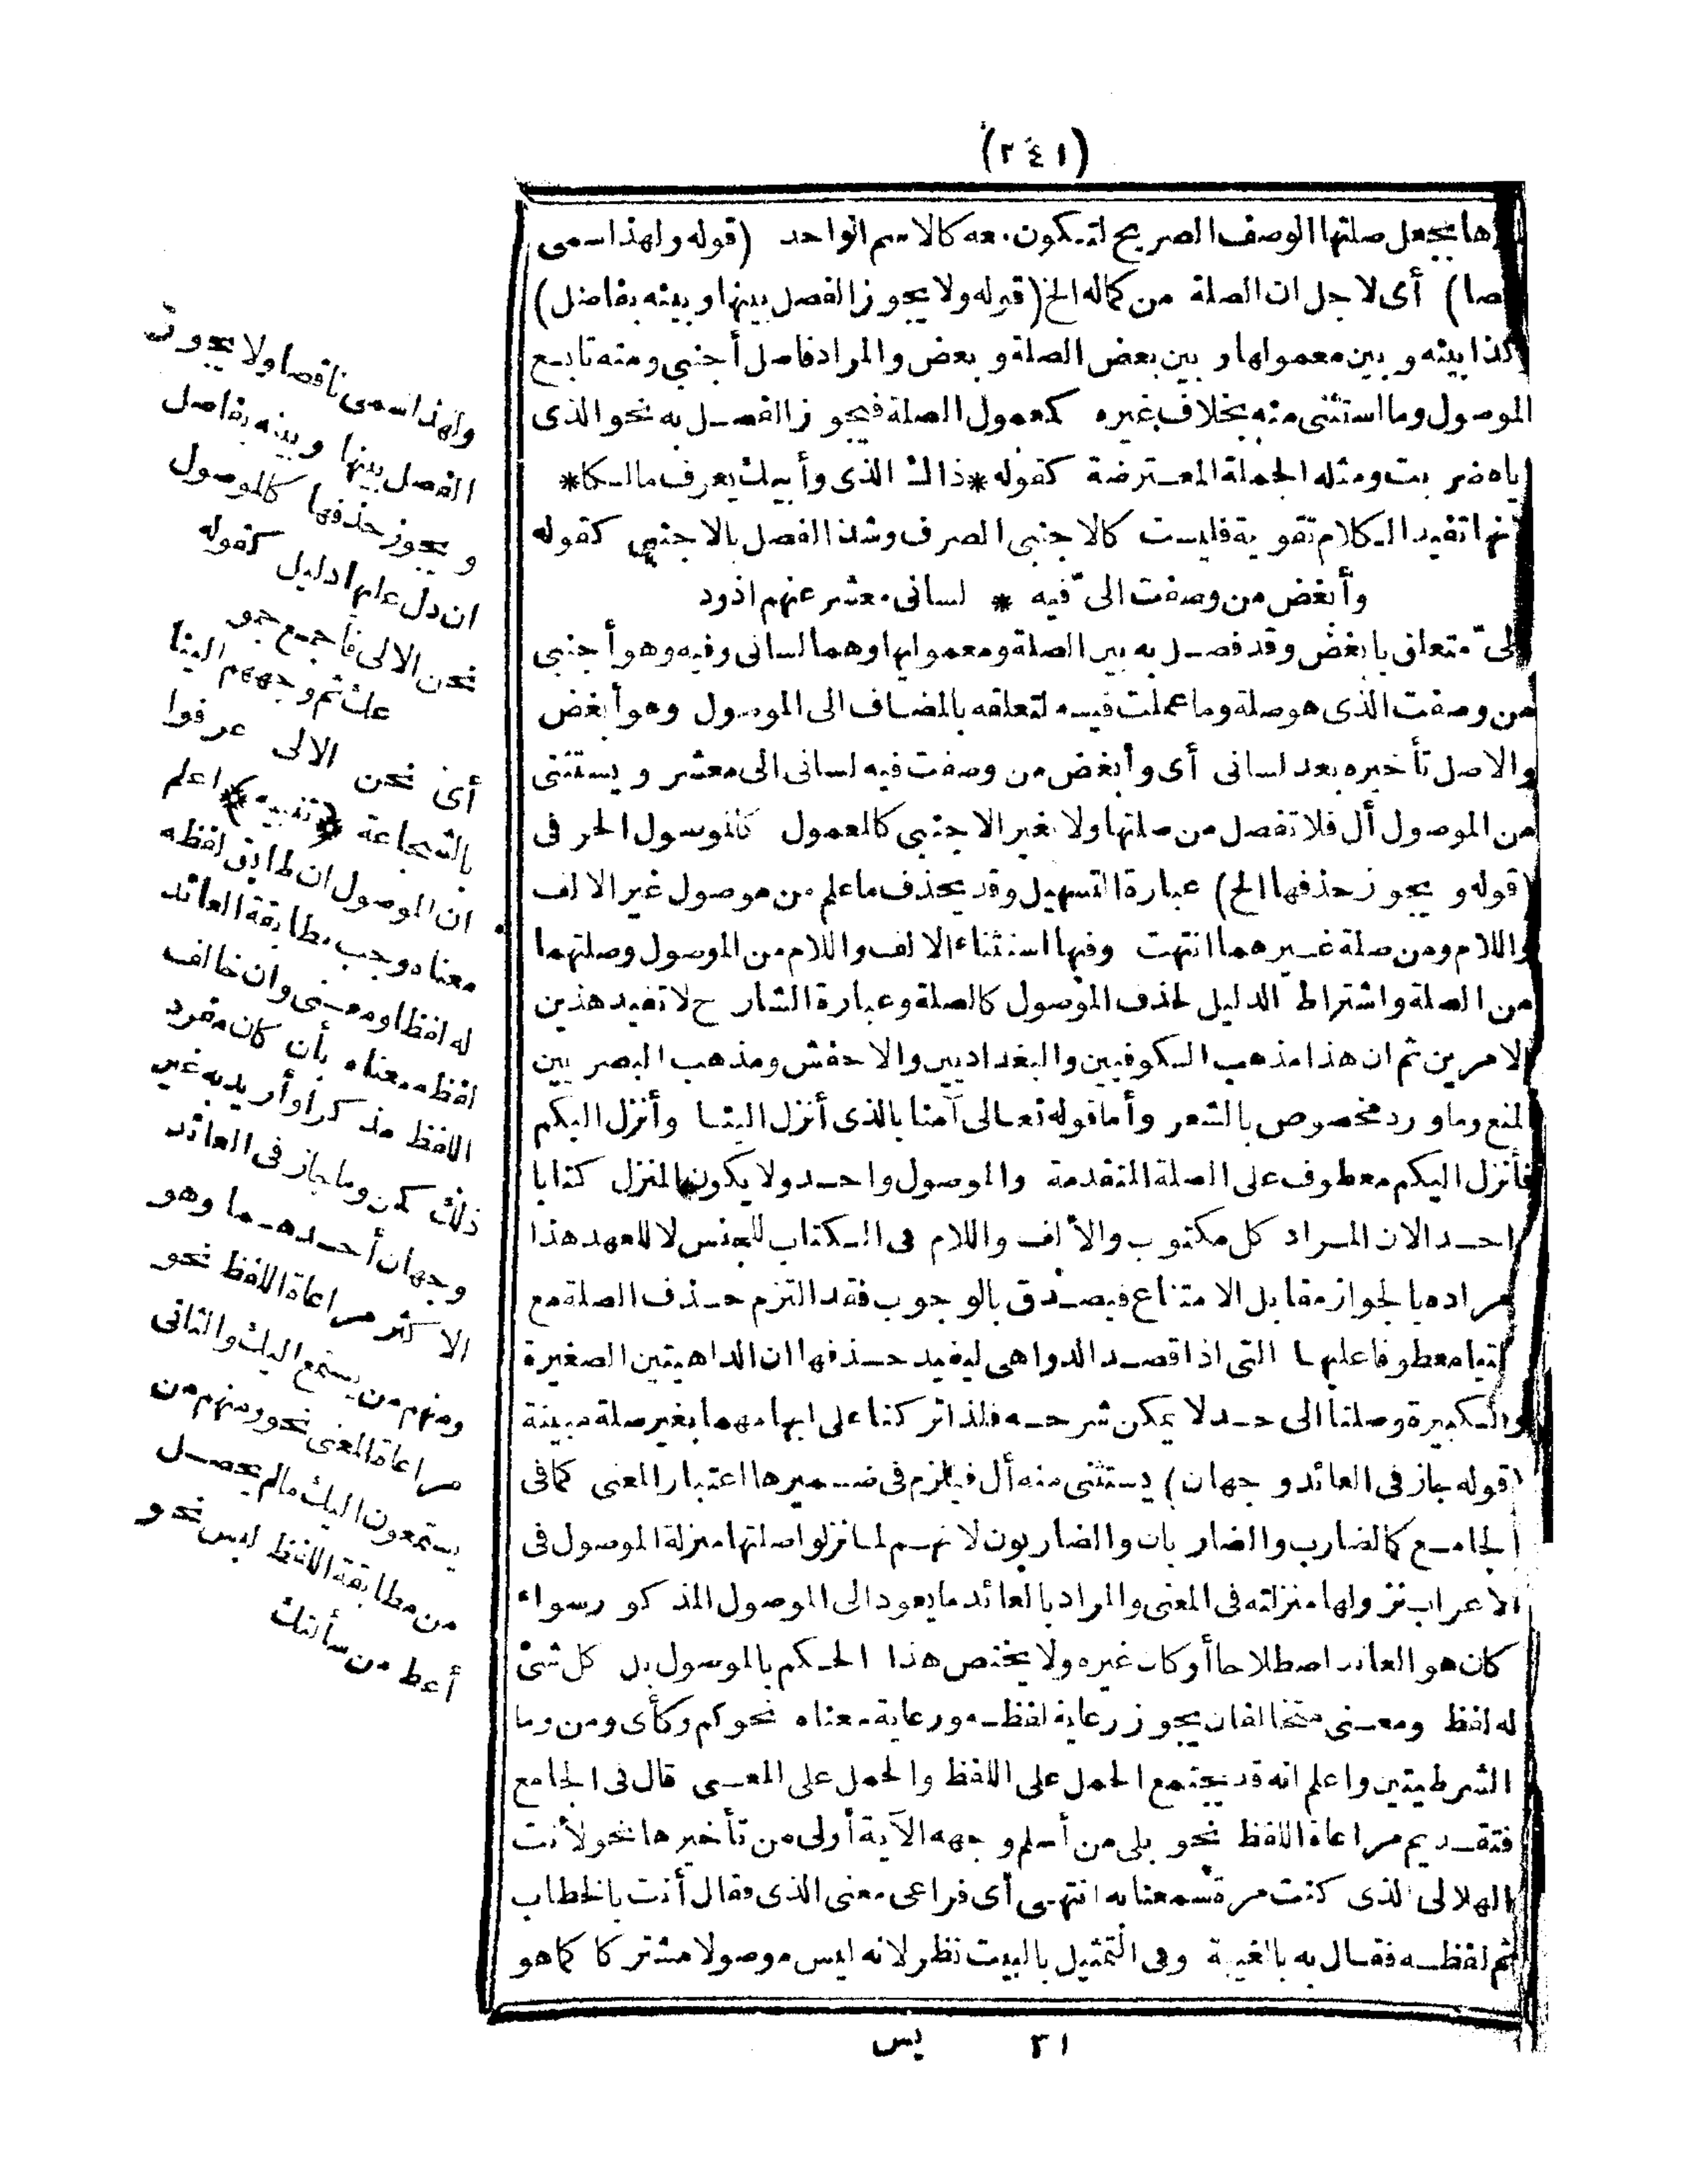 (٢٤١)
ها بجعل صلتها الوصف الصريح لتكون معه كالاسم الواحد (قوله ولهذا سمى
صا) أى لاجل ان الصلة من كماله الخ (قوله ولا يجوز الفصل بينها وبينه بفاصل)
كذا بينه وبين معمولها وبين بعض الصلة وبعض والمراد فاصل أجنبي ومنه تابع
الموصول وما استثنى منه بخلاف غيره كمعمول الصلة فيجوز الفصل به نحو الذى
اياه ضربت ومثله الجملة المعترضة كقوله * ذاك الذى وأبيك يعرف مالكا *
لانها تفيد الكلام تقوية فليست كالاجنبي الصرف وشذ الفصل بالاجنبي كقوله
وأبغض من وصفت الىّ فيه * لسانى معشر عنهم اذود
الىّ متعلق بابغض وقد فصل به بين الصلة ومعموليها وهما لسانى وفيه وهو أجنبى
من وصفت الذى هو صلة وما عملت فيه لتعلقه بالمضاف الى الموصول وهو أبغض
والاصل تأخيره بعد لسانى أى وأبغض من وصفت فيه لسانى الى معشر ويستثنى
من الموصول أل فلا تفصل من صلتها ولا بغير الاجنبي كالمعمول كالموصول الحرفى
(قوله ويجوز حذفها الخ) عبارة التسهيل وقد يحذف ما علم من موصول غير الالف
واللام ومن صلة غيرهما انتهت وفيها استثناء الالف واللام من الموصول وصلتهما
من الصلة واشتراط الدليل لحذف الموصول كالصلة وعبارة الشارح لا تفيد هذين
الامرين ثم ان هذا مذهب الكوفيين والبغداديين والاخفش ومذهب البصريين
المنع وما ورد مخصوص بالشعر وأما قوله تعالى آمنا بالذى أنزل الينا وأنزل اليكم
فأنزل اليكم معطوف على الصلة المتقدمة والموصول واحد ولا يكون المنزل كتابا
احد الان المراد كل مكتوب والألف واللام فى الكتاب للجنس لا للعهد هذا
مراده بالجواز مقابل الامتناع فيصدق بالوجوب فقد التزم حذف الصلة مع
اللتيا معطوفا عليها التى اذا قصد الدواهى ليفيد حذفها ان الداهيتين الصغيرة
والكبيرة وصلتا الى حد لا يمكن شرحه فلذا تركنا على ابهامهما بغير صلة مبينة
(قوله جاز فى العائد وجهان) يستثنى منه أل فيلزم فى ضميرها اعتبار المعنى كما فى
الجامع كالضارب والضاربان والضاربون لانهم لما نزلوا صلتها منزلة الموصول فى
الاعراب نزلوها منزلته فى المعنى والمراد بالعائد ما يعود الى الموصول المذكور سواء
كان هو العائد اصطلاحا أوكان غيره ولا يختص هذا الحكم بالموصول بل كل شئ
له لفظ ومعنى متخالفان يجوز رعاية لفظه ورعاية معناه نحو كم وكأى ومن وما
الشرطيتين واعلم انه قد يجتمع الحمل على اللفظ والحمل على المعنى قال فى الجامع
فتقديم مراعاة اللفظ نحو بلى من أسلم وجهه الآية أولى من تأخيرها نحو لأنت
الهلالى الذى كنت مرة سمعنا به انتهى أى فراعى معنى الذى فقال أنت بالخطاب
ثم لفظه فقال به بالغيبة وفى التمثيل بالبيت نظر لانه ليس موصولا مشتركا كما هو
٣١ يس
ولهذا سمى ناقصا ولا يجوز
الفصل بينها وبينه بفاصل
ويجوز حذفها كالموصول
ان دل عليها دليل كقوله
نحن الالى فاجمع جمو
عك ثم وجههم الينا
أى نحن الالى عرفوا
بالشجاعة ﴿تنبيه﴾ اعلم
ان الموصول ان طابق لفظه
معناه وجب مطابقة العائد
له لفظا ومعنى وان خالف
لفظه معناه بأن كان مفرد
اللفظ مذكرا وأريد به غير
ذلك كمن وما جاز فى العائد
وجهان أحدهما وهو
الاكثر مراعاة اللفظ نحو
ومنهم من يستمع اليك والثانى
مراعاة المعنى نحو ومنهم من
يستمعون اليك مالم يحصل
من مطابقة اللفظ لبس نحو
أعط من سألتك